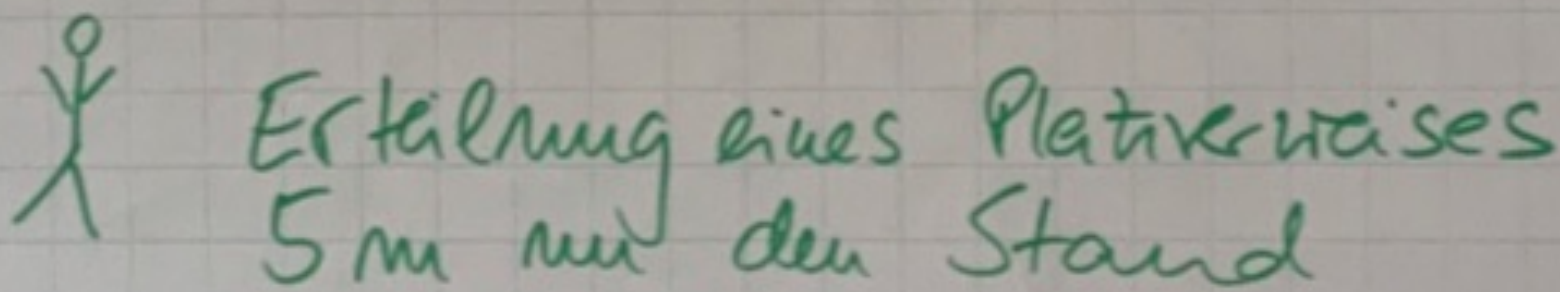 Erteilung eines Platzverweises
5 m um den Stand